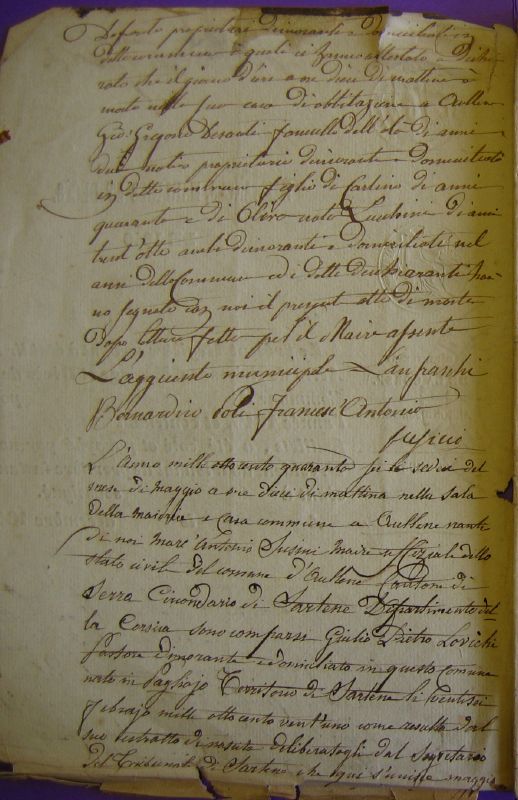 Deforto proprietari dimoranti e domiciliati in
detto commune i quali ci hanno attestato e dichia
rato che il giorno d'ieri a ore dieci di mattina è
morto nella sua casa di abbitazione a Aullene
Gio: Gregorio Desanti fanciullo dell'età di anni
due nativo proprietario dimorante e domiciliato
in detto commune figlio di Carlino di anni
quaranta e di Oliva nata Lucchini di anni
trent'otto ambi dimoranti e domiciliati nel
anni detto Commune ed i detti dichiaranti han
no segnato con noi il present atto di morte
Dopo lettura fatta per il Maire assente
L'aggiunto municipale Lanfranchi
Bernardino Poli Francesc'Antonio
L'anno mille otto cento quaranta sei li sedici del
mese di Maggio a ore dieci di mattina nella sala
della maioria e casa commune a Aullene nante
di noi Marc'Antonio Susini Maire uffiziale dello
stato civil del comune d'Aullene Cantone di
Serra Circondario di Sartene Dipartimento del
la Corsica sono comparsi Giulio Pietro Lovichi
Pastore dimorante e domiciliato in questo comune
nato in Pagliajo Territorio di Sartene li ventisei
febrajo mille otto cento vent'uno come resulta dal
suo estratto di nascita deliberatogli dal Segretario
del Tribunale di Sartene che qui s'unisce maggio